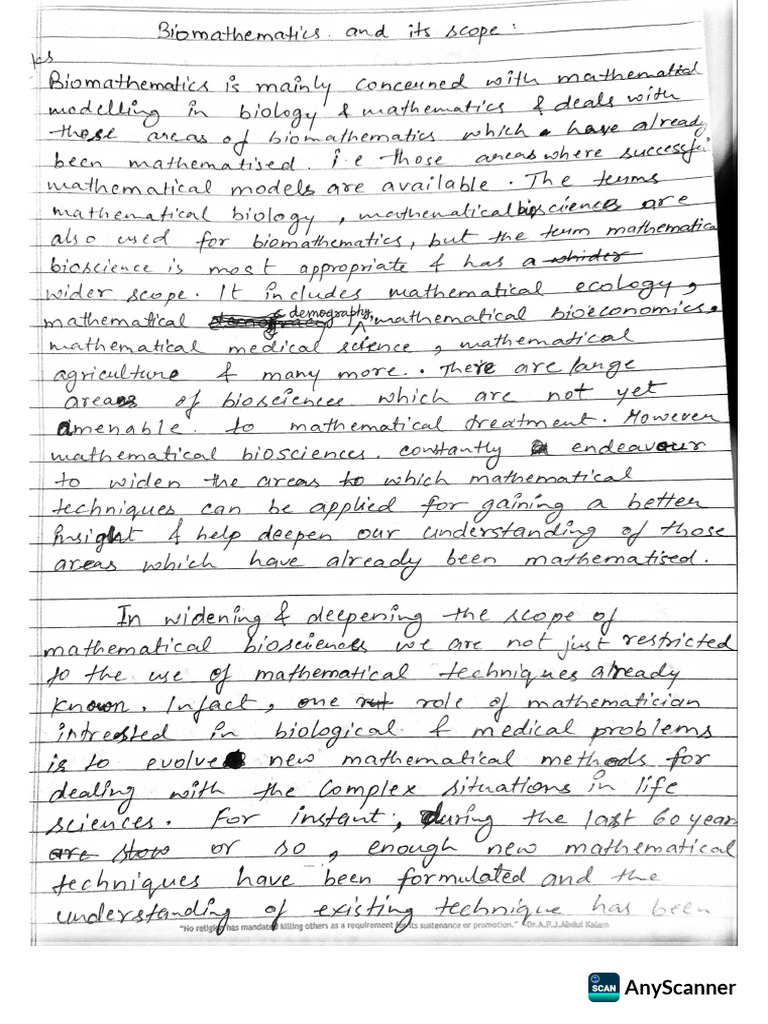 Biomathematics and its scope:
Biomathematics is mainly concerned with mathematical
modelling in biology & mathematics & deals with
those areas of biomathematics which have already
been mathematised. i.e those areas where successful
mathematical models are available. The terms
mathematical biology, mathematical biosciences are
also used for biomathematics, but the term mathematical
bioscience is most appropriate & has a whider
wider scope. It includes mathematical ecology,
mathematical demography, mathematical bioeconomics,
mathematical medical science, mathematical
agriculture & many more. There are large
areas of biosciences which are not yet
amenable to mathematical treatment. However
mathematical biosciences constantly endeavour
to widen the areas to which mathematical
techniques can be applied for gaining a better
insight & help deepen our understanding of those
areas which have already been mathematised.
In widening & deepening the scope of
mathematical biosciences we are not just restricted
to the use of mathematical techniques already
known. Infact, one role of mathematician
intrested in biological & medical problems
is to evolve new mathematical methods for
dealing with the complex situations in life
sciences. For instant, during the last 60 year
or so, enough new mathematical
techniques have been formulated and the
understanding of existing technique has been
"No religion has mandated killing others as a requirement for its sustenance or promotion." -Dr.A.P.J.Abdul Kalam
SCAN AnyScanner